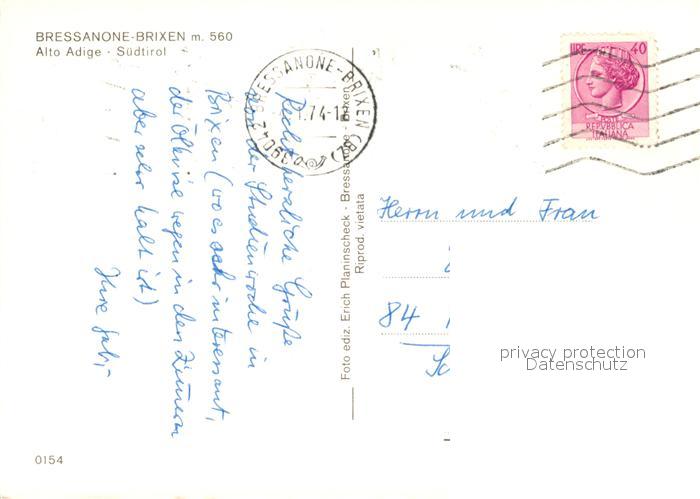 BRESSANONE-BRIXEN m. 560
Alto Adige - Südtirol
Recht herzliche Grüße
von der Studienwoche in
Brixen (wo es sehr interessant,
der Ölkrise wegen in den Zimmern
aber sehr kalt ist)
Ihre
BRESSANONE-BRIXEN (BZ)
39042
.74-1
LIRE 40
POSTE
REPVBBLICA
ITALIANA
Foto ediz. Erich Planinscheck - Bressanone - Brixen
Riprod. vietata
Herrn und Frau
84
privacy protection
Datenschutz
0154